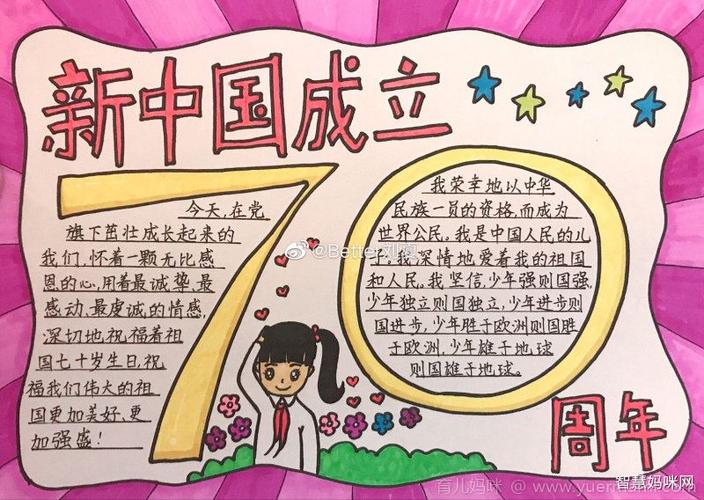 新中国成立
70
今天,在党
旗下茁壮成长起来的
我们,怀着一颗无比感
恩的心,用着最诚挚、最
感动、最虔诚的情感,
深切地祝福着祖
国七十岁生日,祝
福我们伟大的祖
国更加美好、更
加强盛!
我荣幸地以中华
民族一员的资格,而成为
世界公民。我是中国人民的儿
子。我深情地爱着我的祖国
和人民。我坚信,少年强则国强,
少年独立则国独立,少年进步则
国进步,少年胜于欧洲则国胜
于欧洲,少年雄于地球
则国雄于地球。
周年
@Better刘
育儿妈咪 @ www.yuer
智慧妈咪网